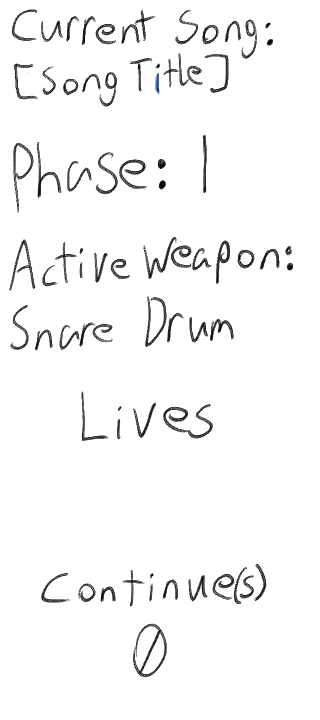 Current Song:
[Song Title]
Phase: 1
Active Weapon:
Snare Drum
Lives
Continue(s)
0